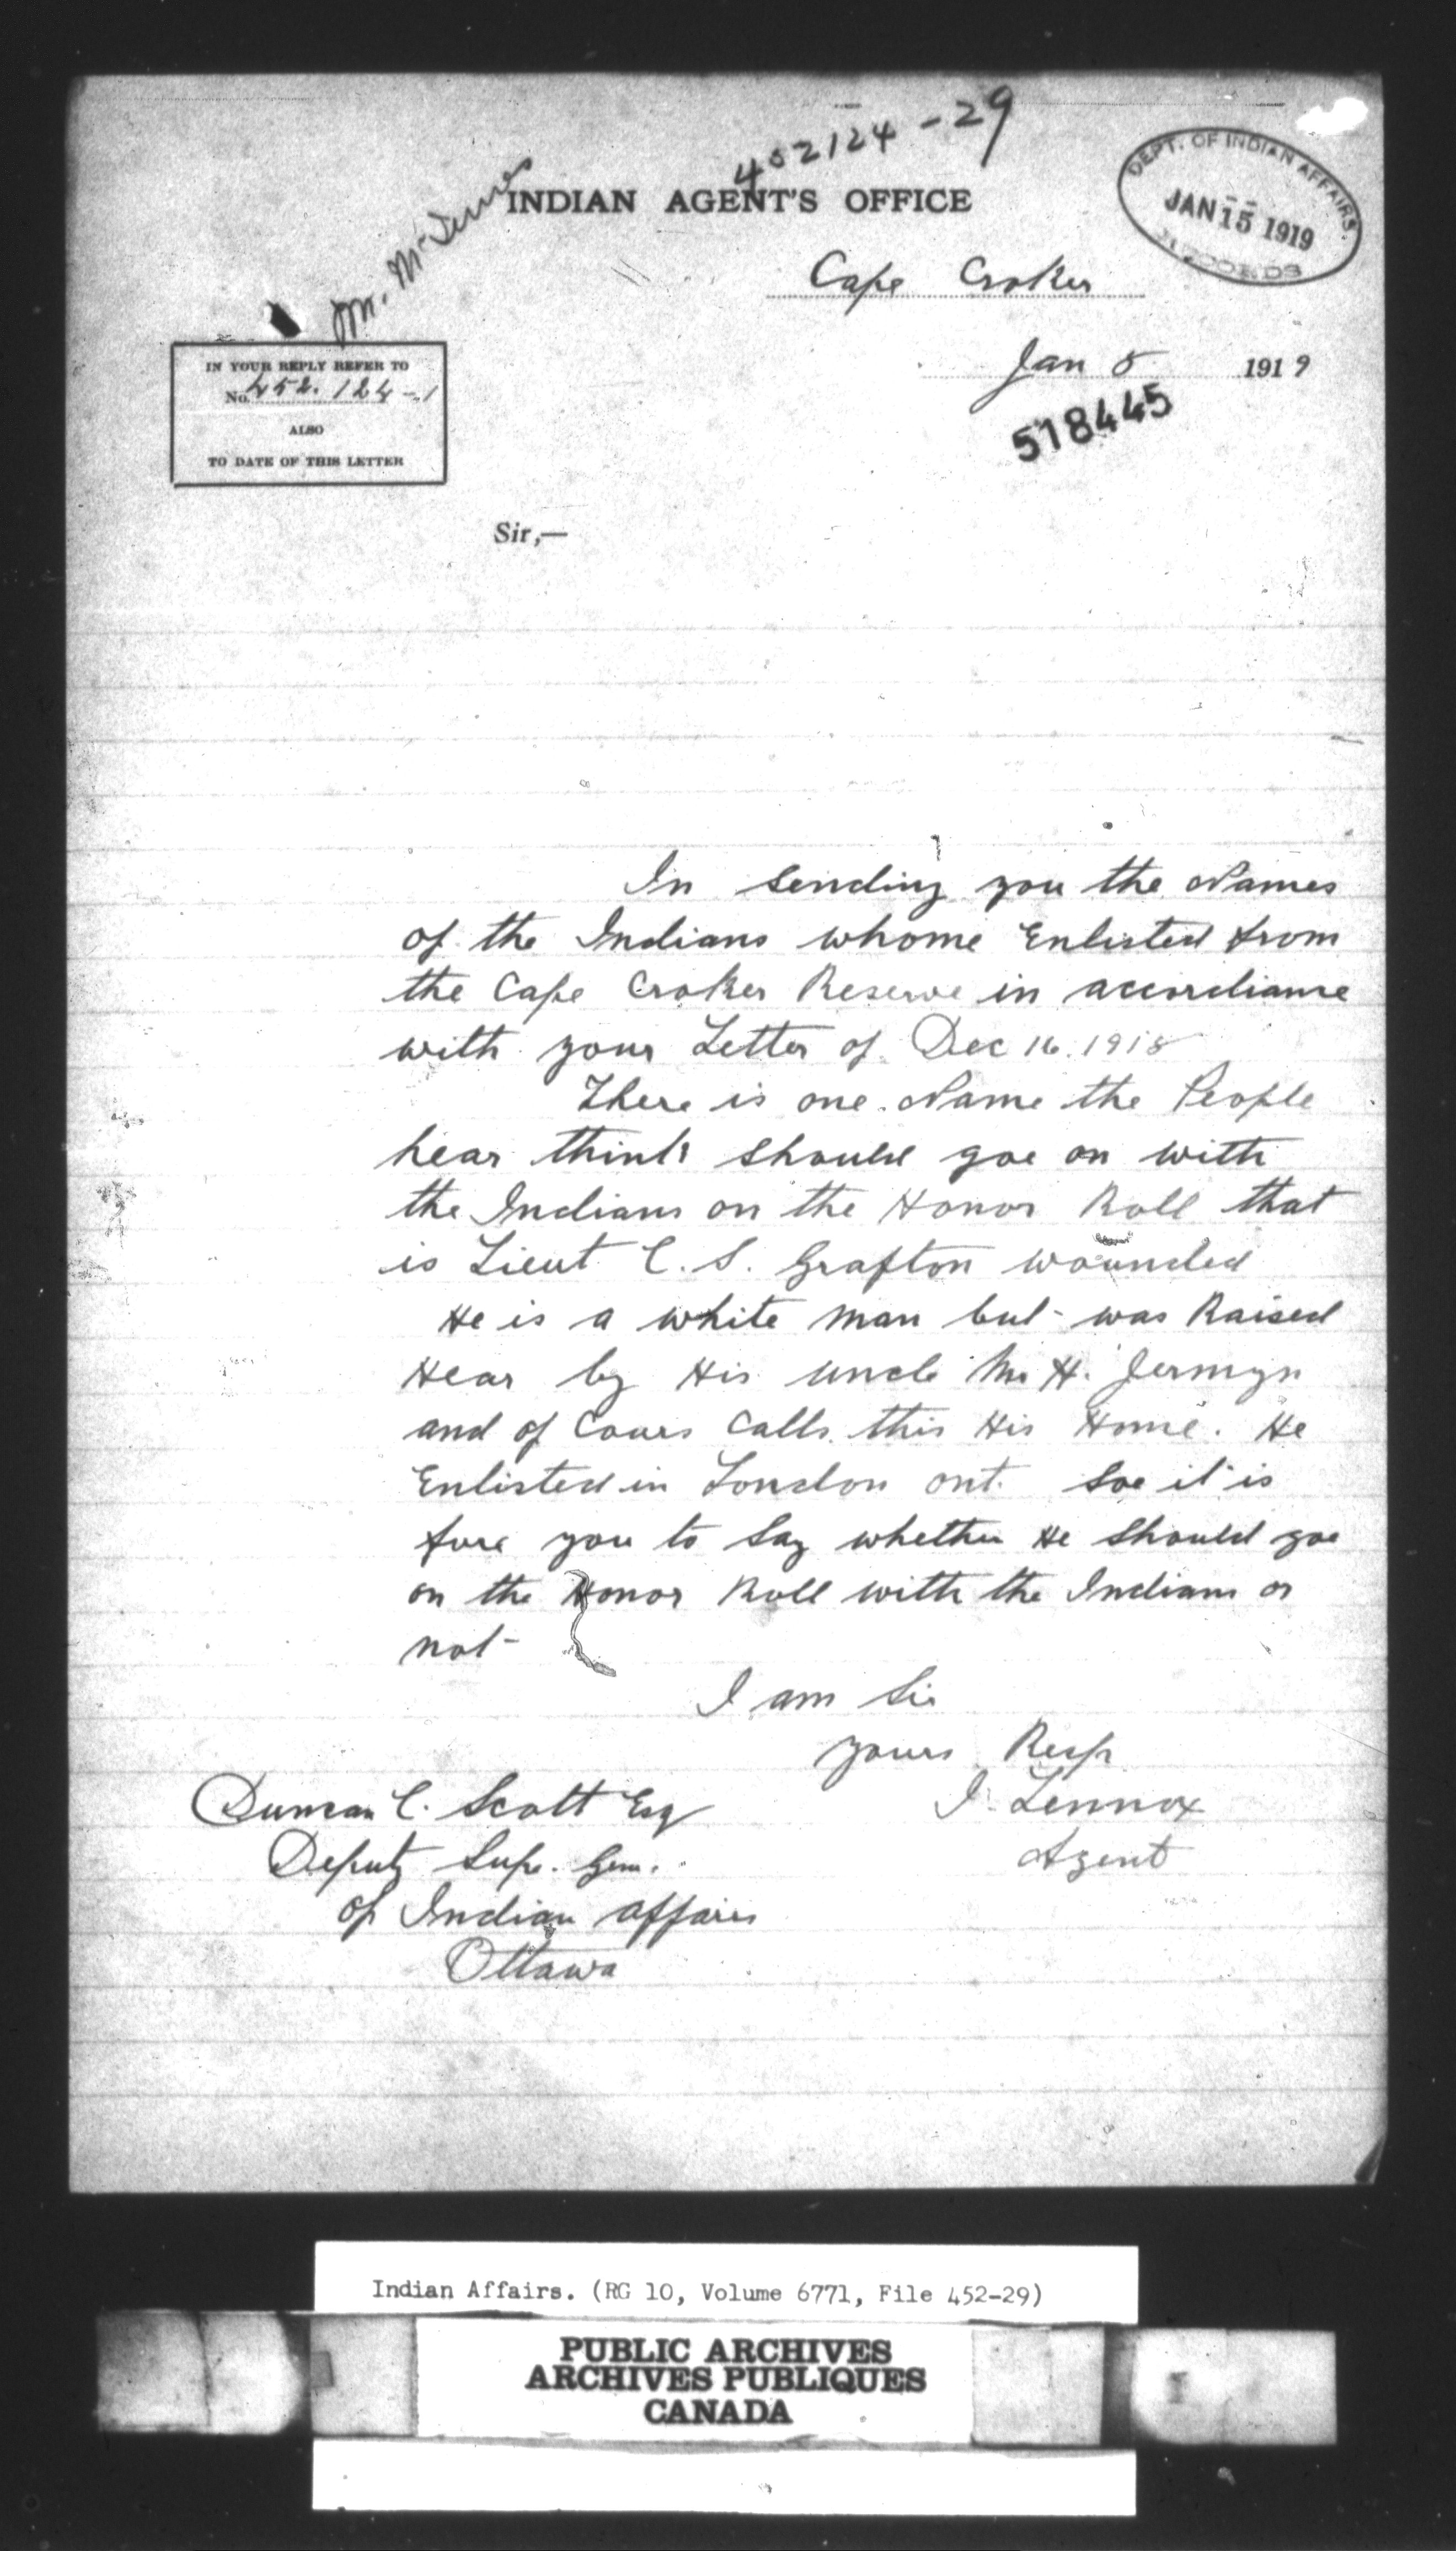 402124-29
Mr. McInnes
INDIAN AGENT'S OFFICE
DEPT. OF INDIAN AFFAIRS.
JAN 15 1919
RECORDS
Cape Croker
Jan 8 1919
518445
IN YOUR REPLY REFER TO
No. 452.124-1
ALSO
TO DATE OF THIS LETTER
Sir,—
In sending you the Names
of the Indians whome Enlisted from
the Cape Croker Reserve in accordiance
with your Letter of Dec 16. 1918
There is one Name the People
hear think should goe on with
the Indians on the Honor Roll that
is Lieut C. S. Grafton wounded
He is a white man but was Raised
Hear by His uncle Mr H. Jermyn
and of Cours Calls this His Home. He
Enlisted in London ont. soe it is
fore you to Say whether He should goe
on the Honor Roll with the Indians or
not-
I am Sir
yours Resp
I. Lennox
Agent
Duncan C. Scott Esq
Deputy Supe. Gen.
of Indian affairs
Ottawa
Indian Affairs. (RG 10, Volume 6771, File 452-29)
PUBLIC ARCHIVES
ARCHIVES PUBLIQUES
CANADA